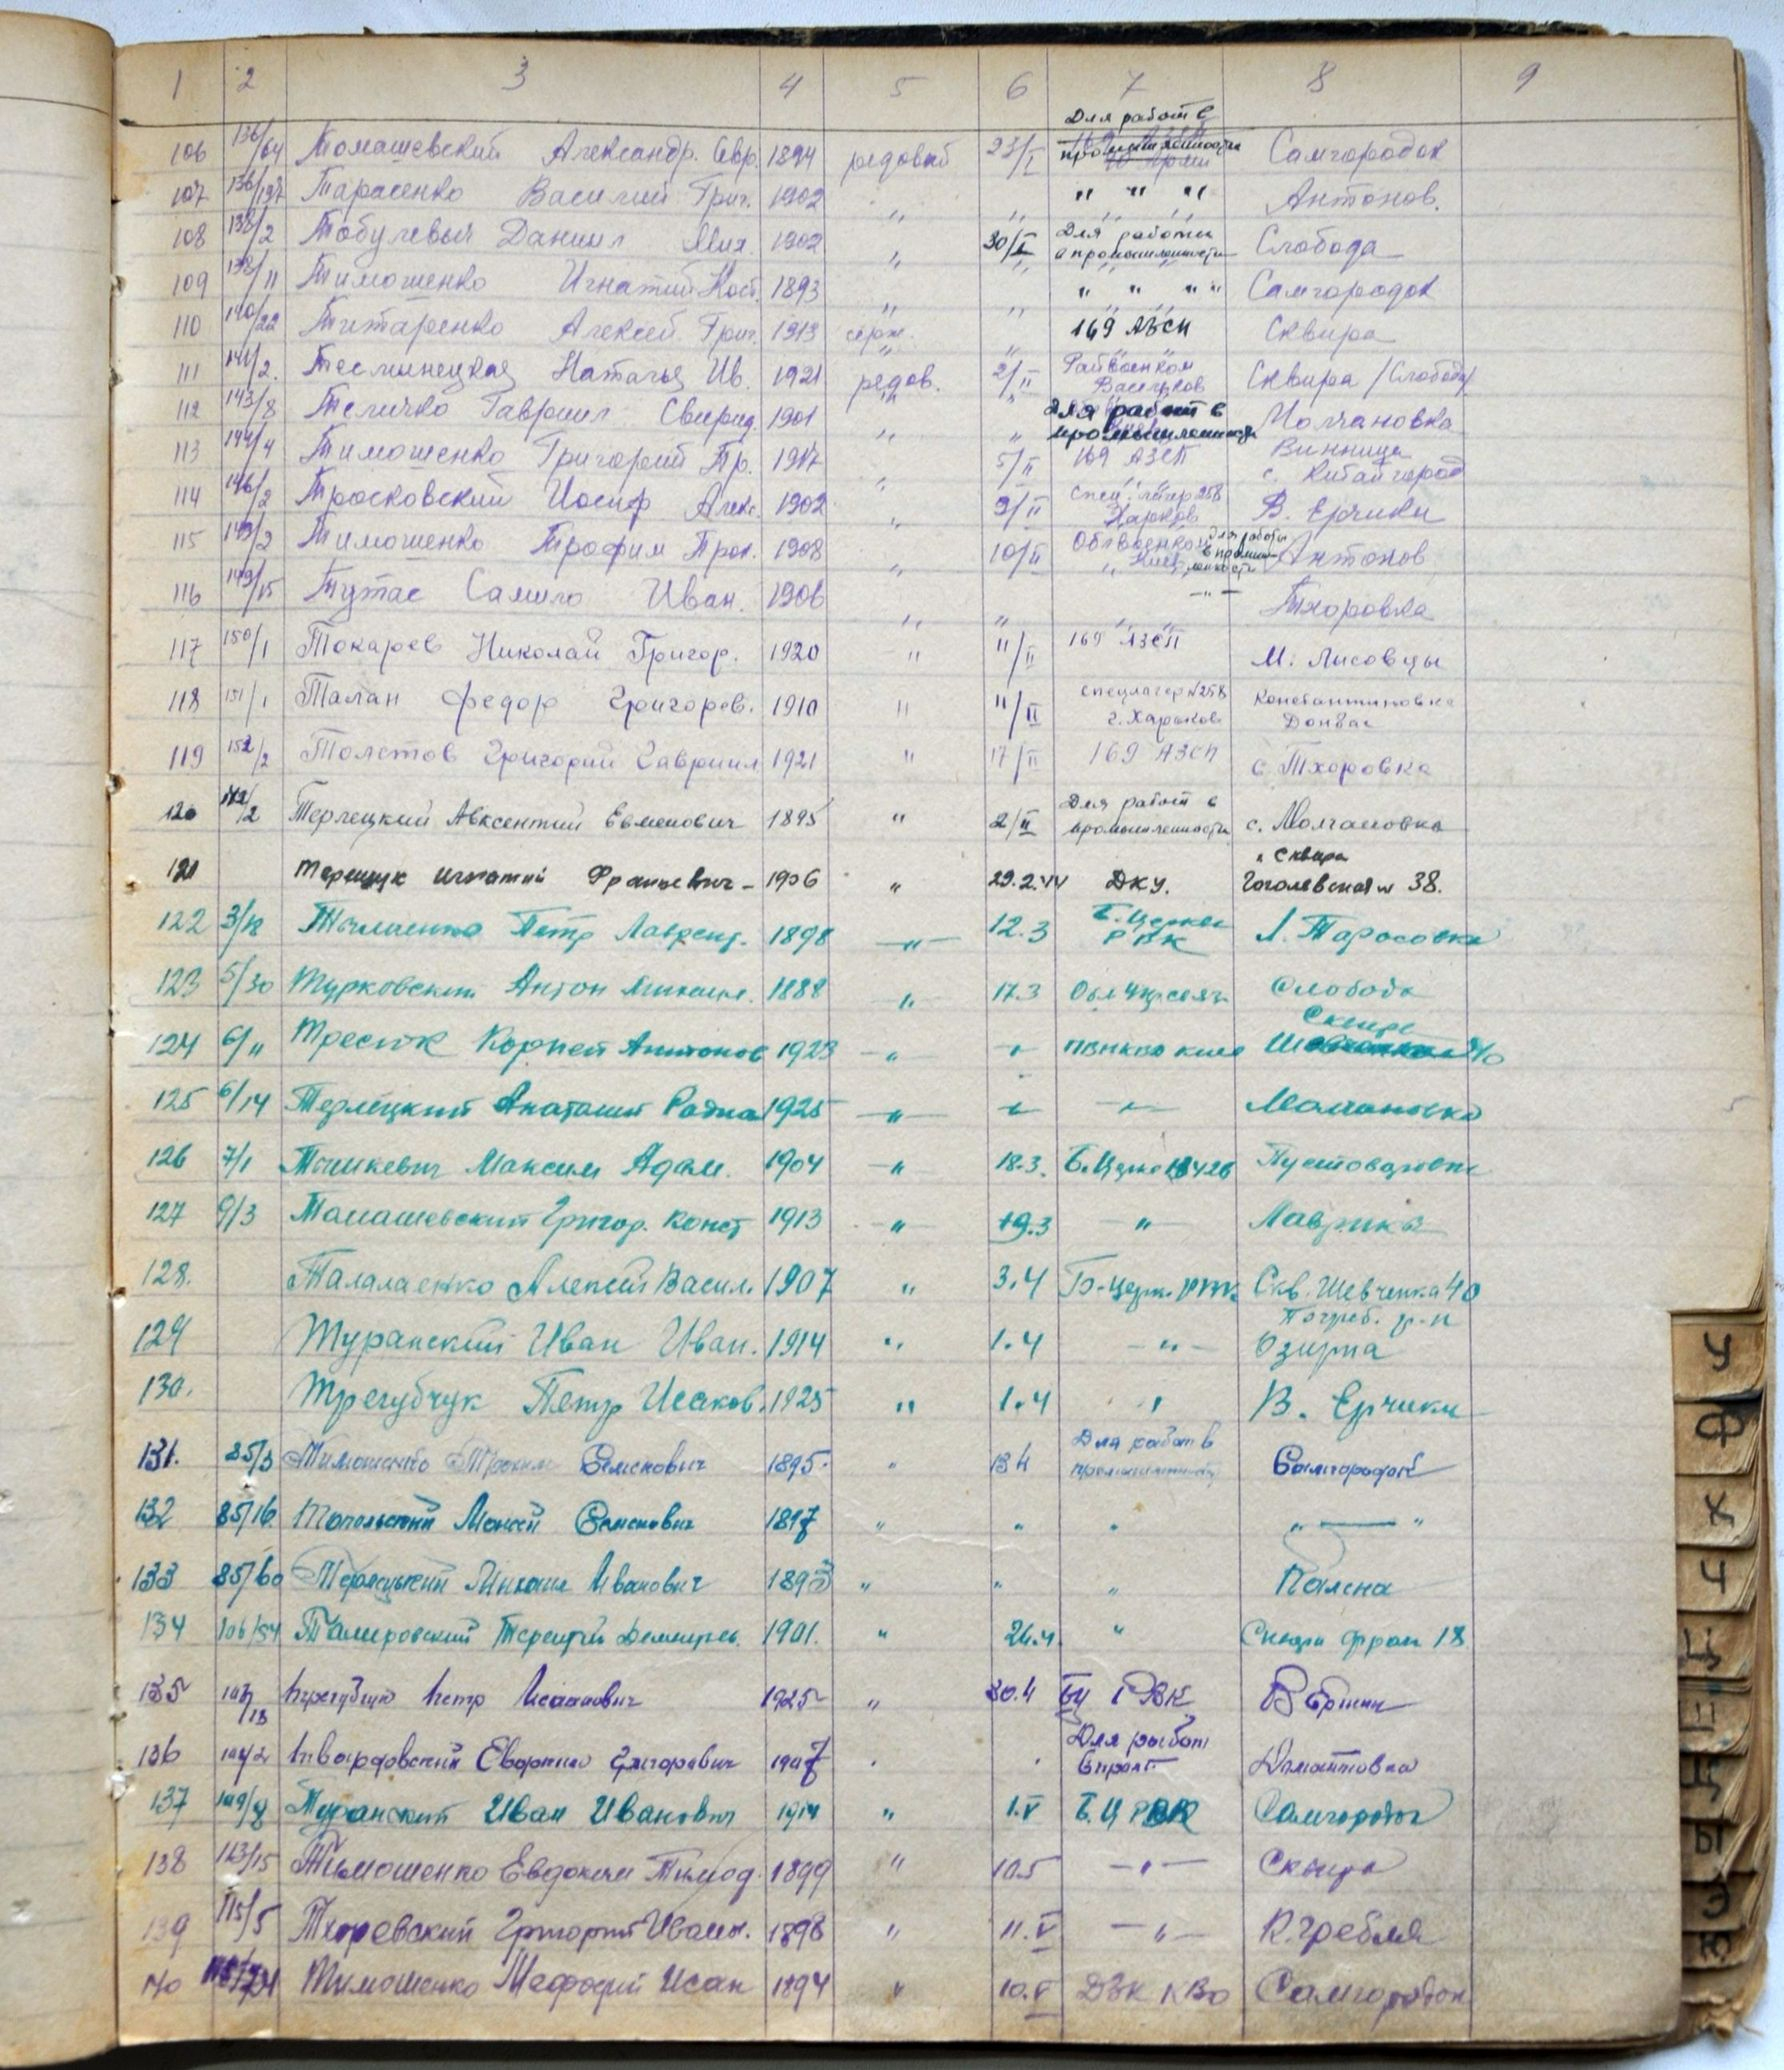 1 2 3 4 5 6 7 8 9
106 136/64 Томашевский Александр. Евр. 1894 рядовой 23/I Для работ в промышленности Самгородок
107 136/137 Тарасенко Василий Григ. 1902 " " " " " Антонов.
108 138/2 Тобулевыч Даниил Мих. 1902 " 30/I Для работы в промышленности Слобода
109 138/11 Тимошенко Игнатий Кост. 1893 " " " " " " Самгородок
110 140/22 Титаренко Алексей Григ. 1913 серж. " 169 АЗСП Сквира
111 141/2. Теслинецкая Наталья Ив. 1921 рядов. 2/II Райвоенком Васильков Сквира /Слобода/
112 143/8 Теличко Гавриил Свирид. 1901 " " Для работ в промышленности Молчановка
113 144/4 Тимошенко Григорий Пр. 1917 " 5/II 169 АЗСП Винница с. Китайгород
114 146/2 Тросковский Иосиф Алек. 1902 " 9/II Спец. лагер 258 Харьков В. Ерчики
115 149/2 Тимошенко Трофим Прок. 1908 " 10/II Облвоенком Киев для работы в промышленности Антонов
116 149/15 Тутас Самило Иван. 1906 " " -"- Тхоровка
117 150/1 Токарев Николай Григор. 1920 " 11/II 169 АЗСП М. Лисовцы
118 151/1 Талан Федор Григорев. 1910 " 11/II спецлагер №258 г. Харьков Константиновка Донбас
119 152/2 Толстов Григорий Гавриил 1921 " 17/II 169 АЗСП с. Тхоровка
120 142/2 Терлецкий Авксентий Евменович 1895 " 2/II Для работ в промышленности с. Молчановка
121 Терещук Игнатий Францевич - 1906 " 29.2.44 ДКУ. Сквира Гоголевская 38.
122 3/18 Петр Лаврент. 1898 -"- 12.3 Б. Церкв РВК Л. Тарасовка
123 5/30 Турковский Антон Михаил. 1888 " 17.3 Слобода
124 6/11 Корней Антонов 1923 -"- -"- Сквира
125 6/14 Терлецкий Анатолий 1925 -"- -"- -"- Молчановка
126 7/1 Максим Адам. 1904 -"- 18.3. Пустоваровка
127 9/3 Томашевский Григор. Конст 1913 -"- 19.3 -"- Лаврики
128. Талалаенко Алексей Васил. 1907 " 3.4 Б-Церк. РВК Скв. Шевченка 40
129 Туранский Иван Иван. 1914 " 1.4 -"- Погреб. р-н Озирна
130. Трегубчук Петр Исаков. 1925 " 1.4 " В. Ерчики
131. 85/3 Тимошенко Трохим Семенович 1895. " 13.4 Для работ в промышленности Самгородок
132 85/16. Топольский Моисей Семенович 1897 " " " " — "
133 85/60 Терлецький Михаил Иванович 1893 " " " Чалена
134 106/54 Терентий 1901. " 26.4 " Сквира Фрон 18
135 107/13 Трегубчук Петр Исаакович 1925 " 30.4 БЦ РВК В Ерчики
136 Твардовский Григоревич 1907 " " Для работ в пром.
137 109/8 Туранский Иван Иванович 1914 " 1.V Б. Ц РВК Самгородок
138 113/15 Тимошенко Евдоким Тимоф. 1899 " 10.5 -"- Сквира
139 115/5 Тхоревский Григорий Иванов. 1898 " 11.V -"- К. Гребля
140 Тимошенко Мефодий Исак 1894 " 10.V ДВК КВО Самгородок
У
Ф
Х
Ч
Ц
Ш
Щ
Ы
Э
Ю